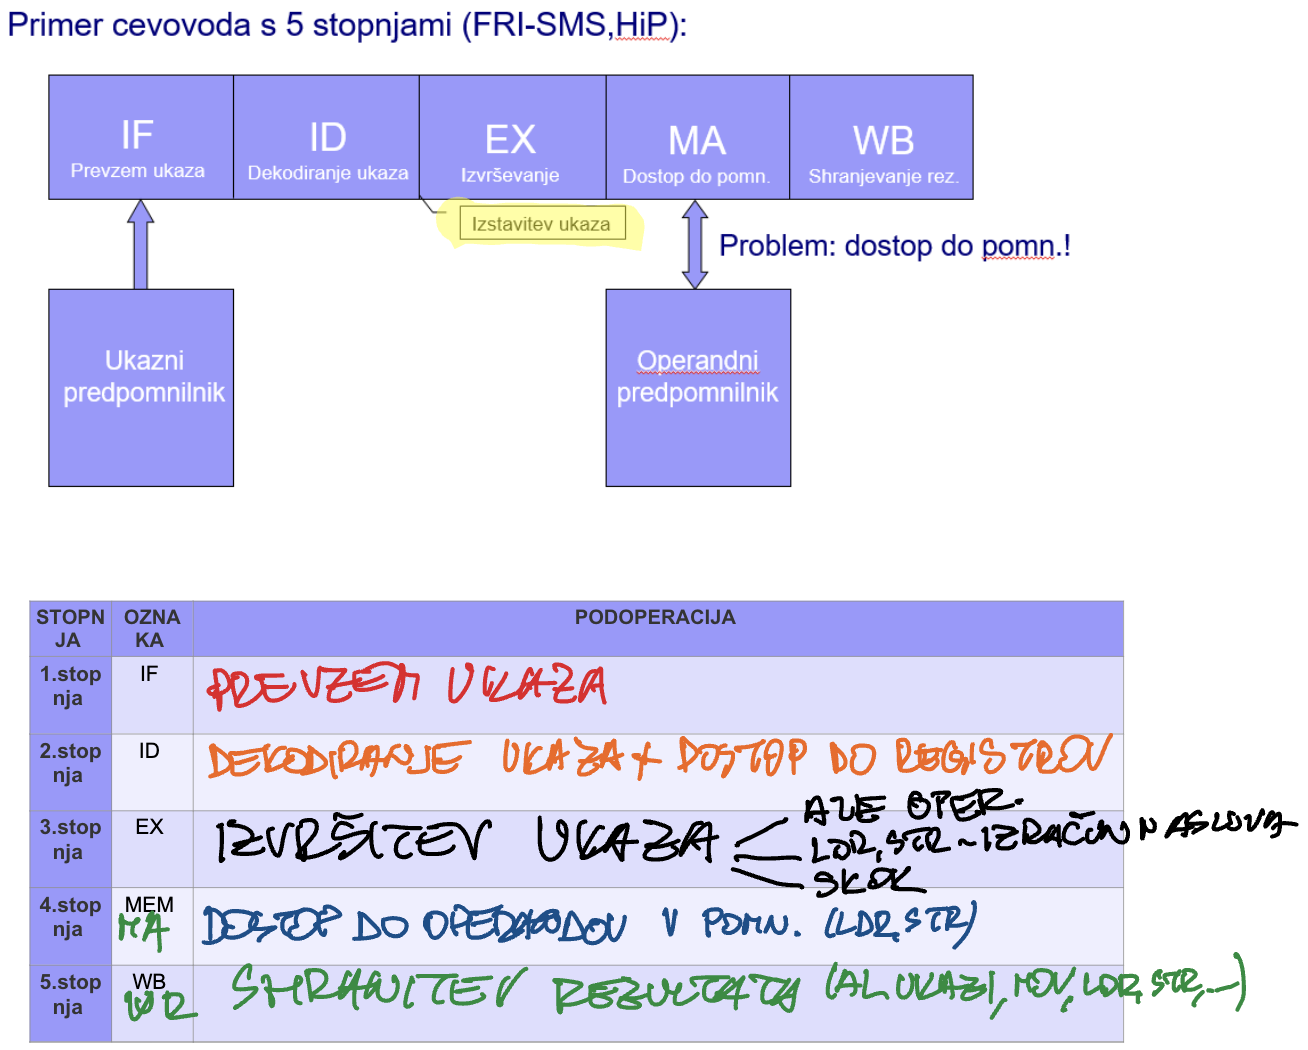 Primer cevovoda s 5 stopnjami (FRI-SMS,HiP):
IF
Prevzem ukaza
ID
Dekodiranje ukaza
EX
Izvrševanje
MA
Dostop do pomn.
WB
Shranjevanje rez.
Izstavitev ukaza
Problem: dostop do pomn.!
Ukazni
predpomnilnik
Operandni
predpomnilnik
STOPN
JA
OZNA
KA
PODOPERACIJA
1.stop
nja
IF
PREVZEM UKAZA
2.stop
nja
ID
DEKODIRANJE UKAZA + DOSTOP DO REGISTROV
3.stop
nja
EX
IZVRŠITEV UKAZA
ALE OPER.
LDR, STR ~ IZRAČUN NASLOVA
SKOK
4.stop
nja
MEM
MA
DOSTOP DO OPERANDOV V POMN. (LDR, STR)
5.stop
nja
WB
WR
SHRANITEV REZULTATA (AL UKAZI, MOV, LDR, STR, ...)